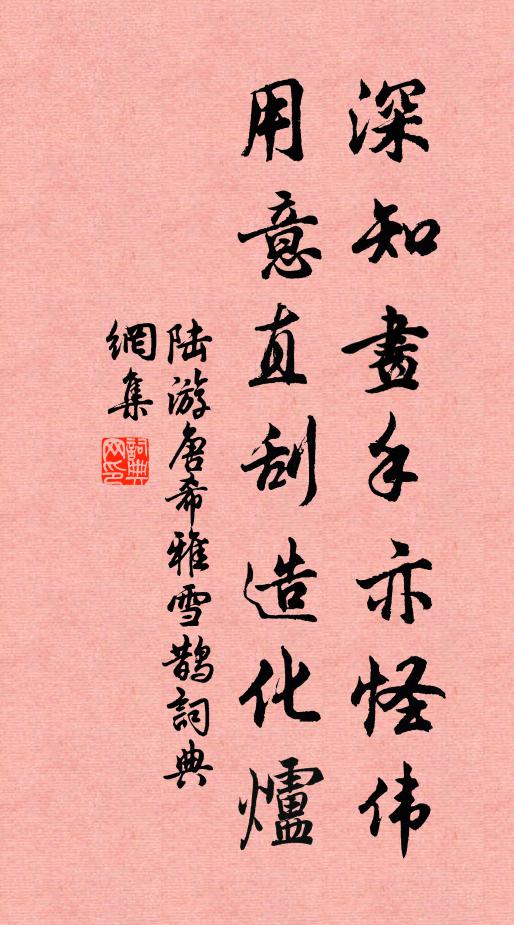 深知畫手亦怪伟
用意直刮造化爐
陆游唐希雅雪鵲詞典
網集
詞典
网印